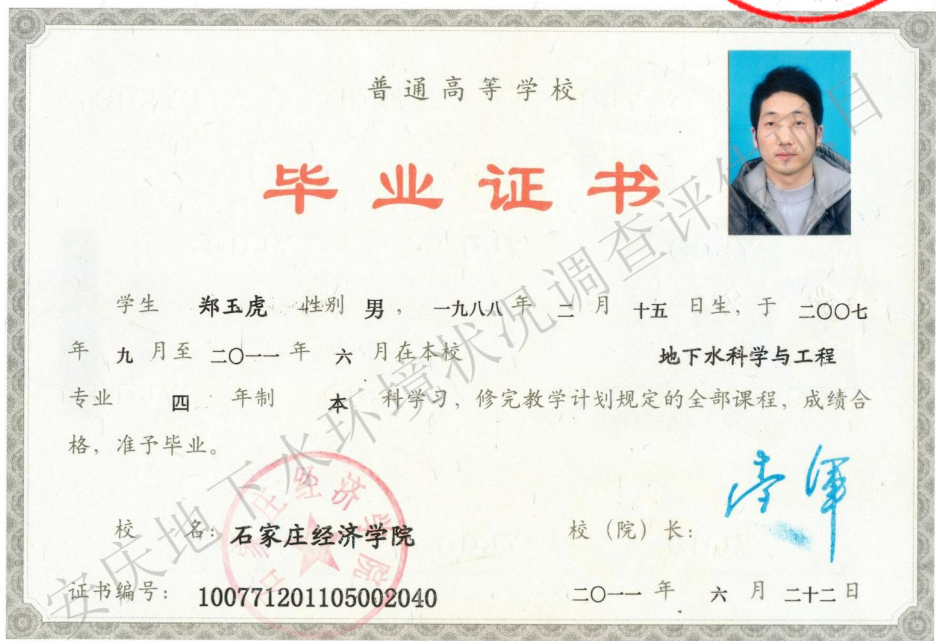 普通高等学校
毕业证书
学生 郑玉虎 性别 男，一九八八年 二 月 十五 日生，于 二〇〇七
年 九 月至 二〇一一 年 六 月在本校 地下水科学与工程
专业 四 年制 本 科学习，修完教学计划规定的全部课程，成绩合
格，准予毕业。
校 名：石家庄经济学院
校（院）长：
证书编号：100771201105002040
二〇一一 年 六 月 二十二日
石家庄经济学院
安庆地下水环境状况调查评估项目